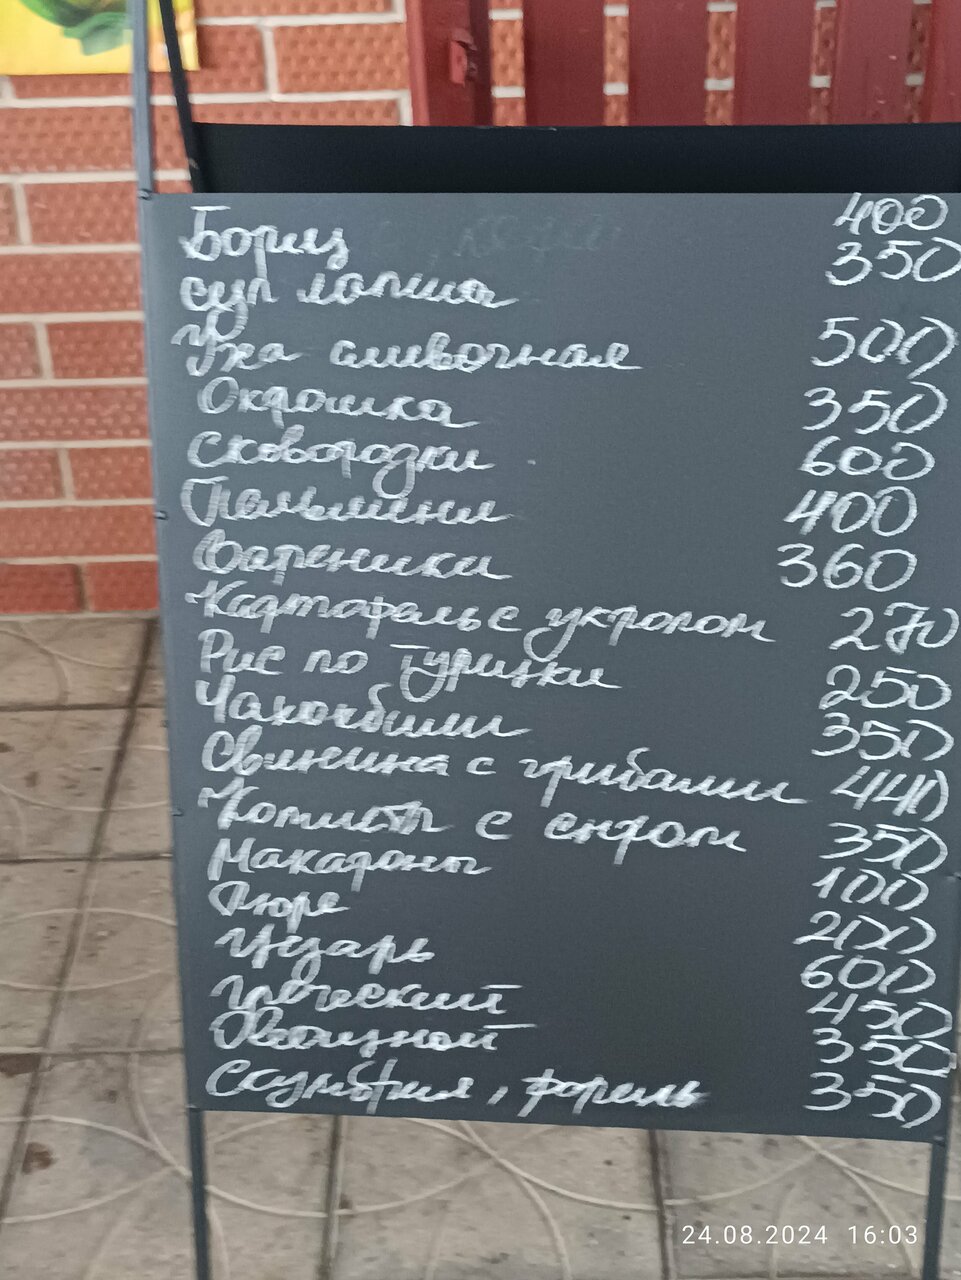 Борщ 400
суп лапша 350
Уха сливочная 500
Окрошка 350
Сковородки 600
Пельмени 400
Вареники 360
Картофель с укропом 270
Рис по Турецки 250
Чахохбили 350
Свинина с грибами 440
Котлеты с сыром 350
Макароны 100
Пюре 200
Цезарь 600
Греческий 450
Овощной 350
Скумбрия, форель 350
24.08.2024 16:03